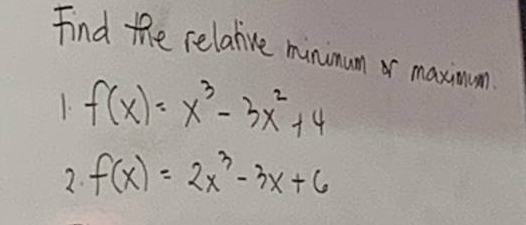 Find the relative minimum or maximum.
1. f(x) = x³ - 3x² + 4
2. f(x) = 2x³ - 3x + 6